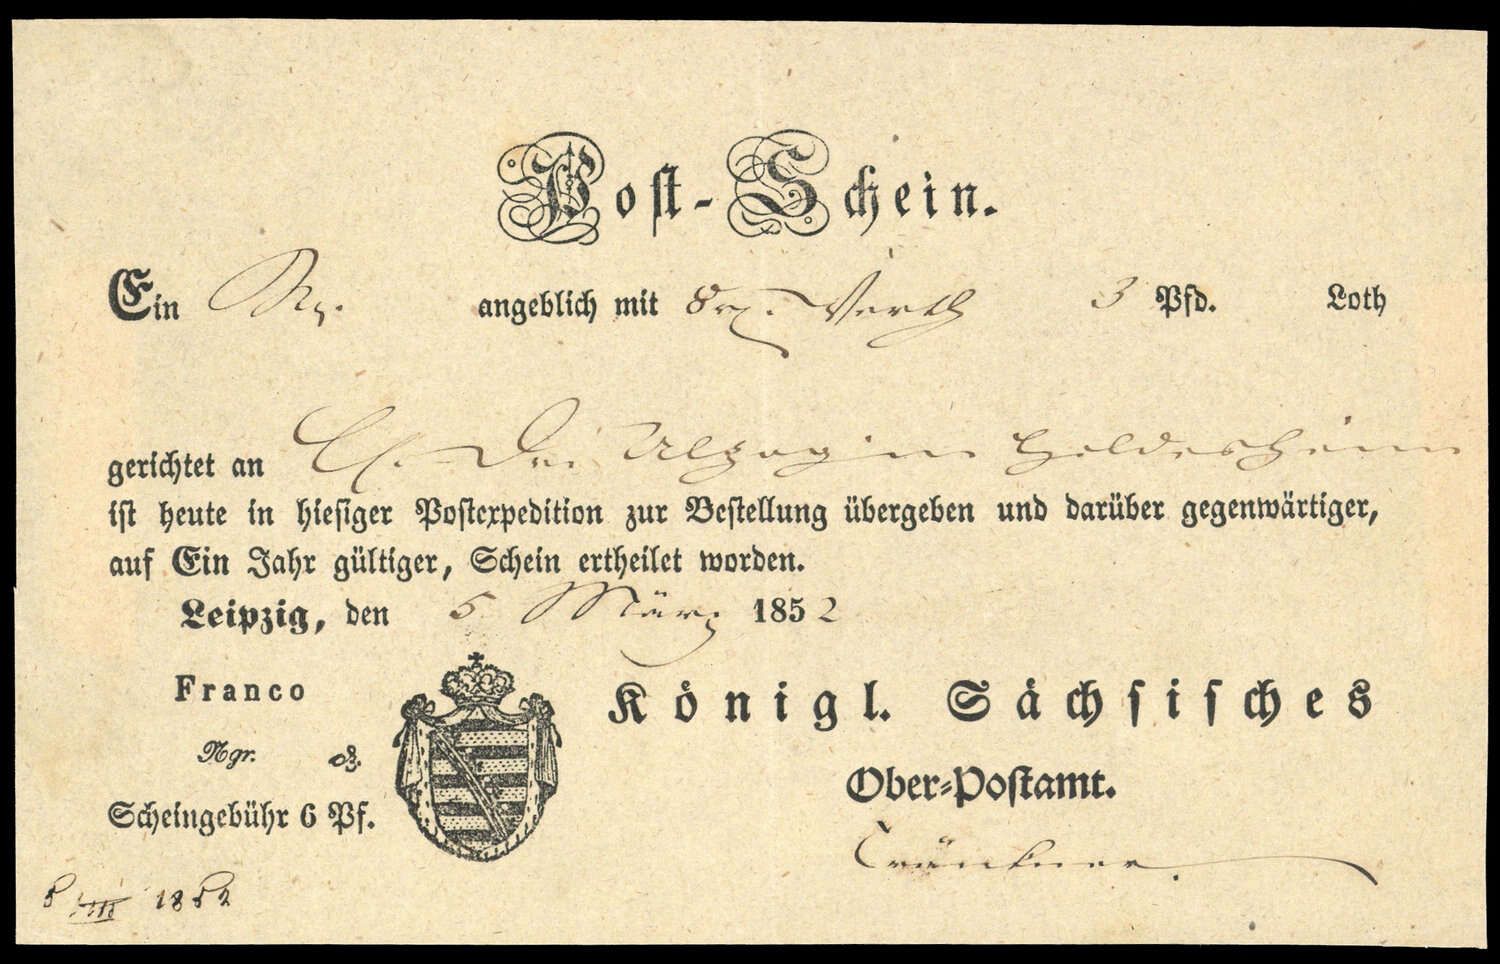 Post-Schein.
Ein angeblich mit 8 Werth 3 Pfd. Loth
gerichtet an
ist heute in hiesiger Postexpedition zur Bestellung übergeben und darüber gegenwärtiger,
auf Ein Jahr gültiger, Schein ertheilet worden.
Leipzig, den 5 März 1852
Franco
Königl. Sächsisches
Ngr. ₰.
Ober-Postamt.
Scheingebühr 6 Pf.
5 III 1852